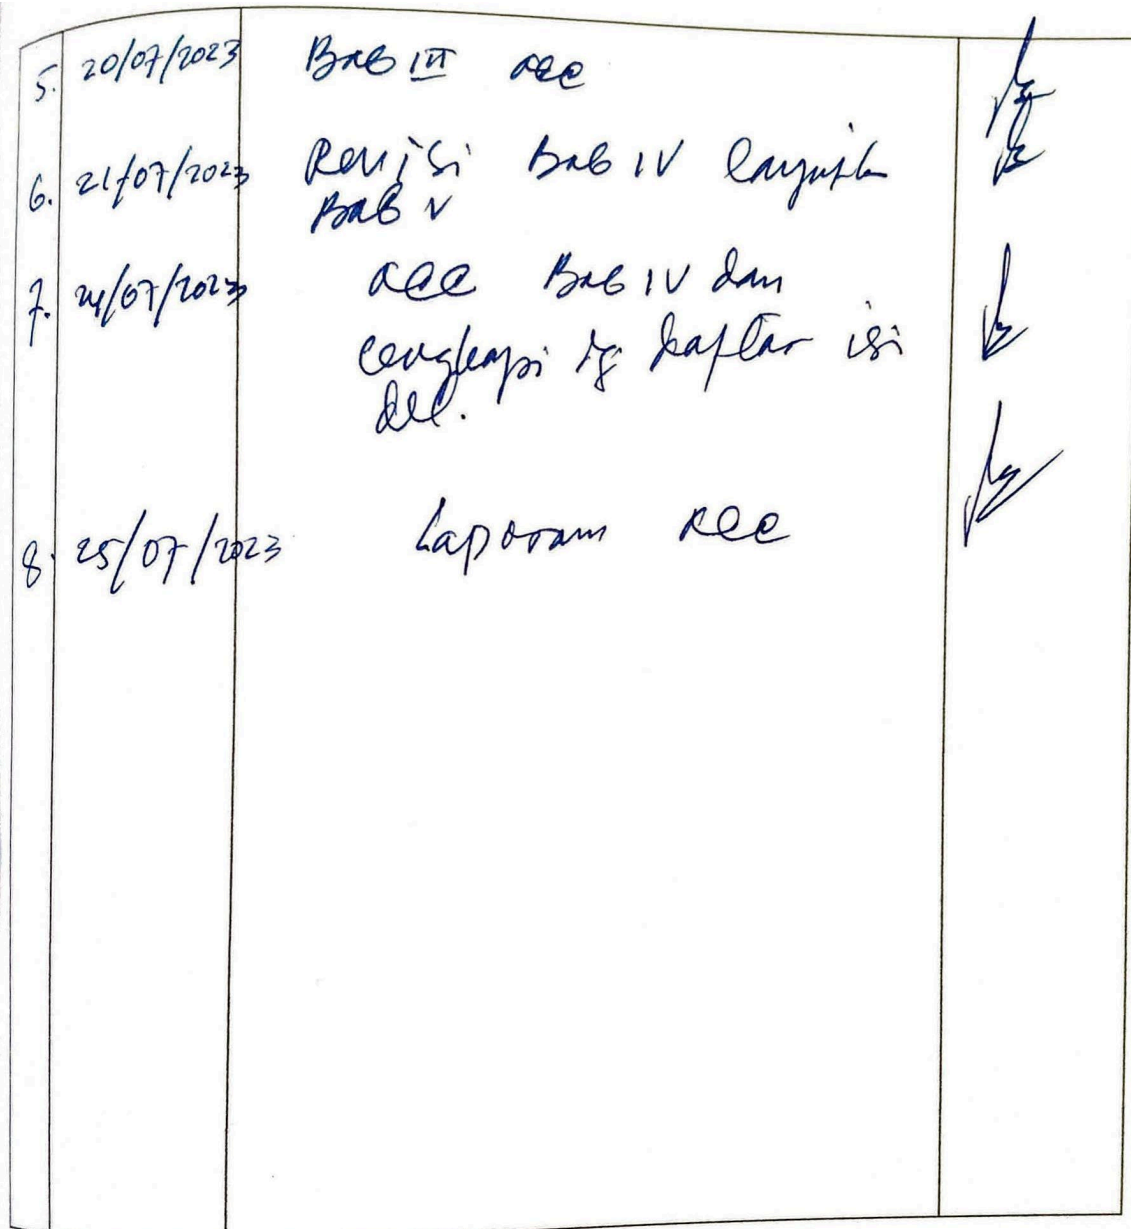 5. 20/07/2023 Bab III acc
6. 21/07/2023 Revisi Bab IV lanjutk
Bab V
7. 24/07/2023 acc Bab IV dan
lengkapi dg daftar isi
dll.
8. 25/07/2023 Laporan acc